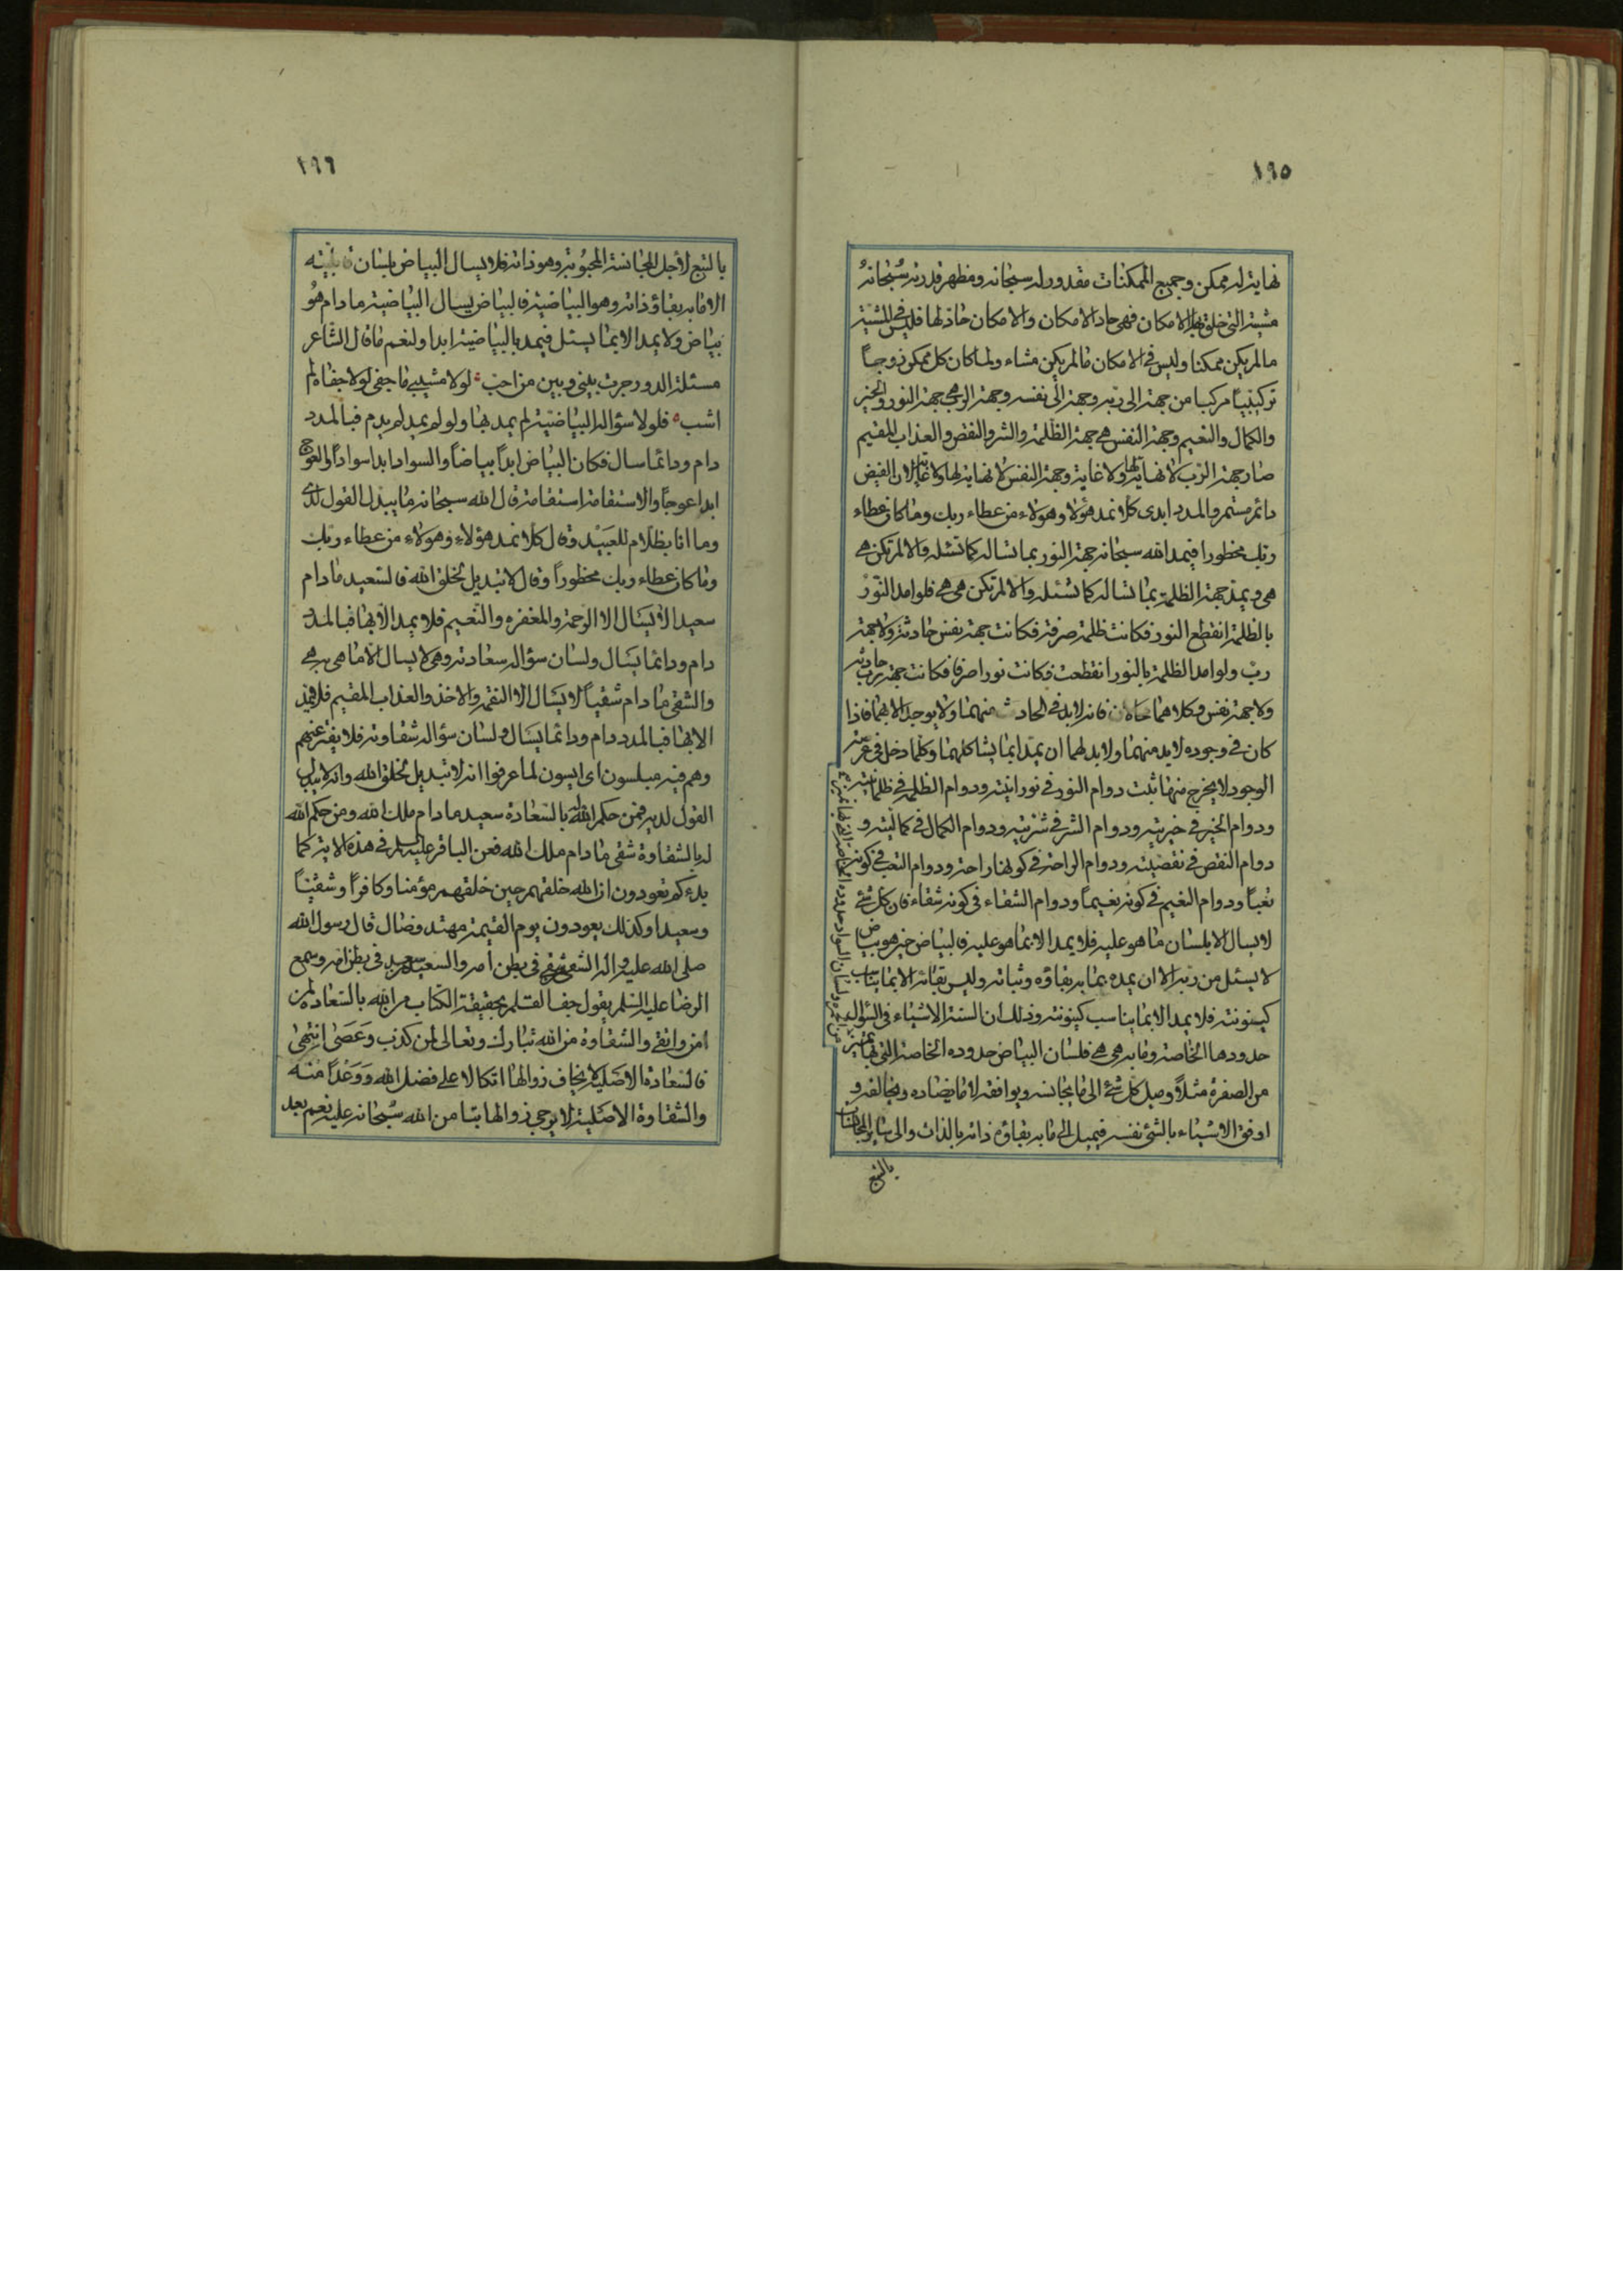 ١٩٥
نهاية له ممكن وجميع الممكنات مقدور له سبحانه ومظهر قدرته سبحانه
مشيته التى خلق بها الامكان فهى حاد الامكان والامكان حاد لها فليس فى المشية
ما لم يكن ممكنا وليس فى الامكان ما لم يكن مشاء ولما كان كل ممكن زوجاً
تركيبياً مركبا من جهة الى ربه وجهة الى نفسه وجهة الرب هى جهة النور والخير
والكمال والنعيم وجهة النفس هى جهة الظلمة والشر والنقص والعذاب المقيم
صار جهة الرب لا نهاية لها ولا غاية وجهة النفس لا نهاية لها ولا غاية لان الفيض
دائم مستمر والمدد ابدى كلا نمد هؤلاء وهؤلاء من عطاء ربك وما كان عطاء
ربك محظورا فيمد الله سبحانه جهة النور بما تساله كما تسئله والا لم تكن هى
هى ويمد جهة الظلمة بما تساله كما تسئله والا لم تكن هى هى فلو امد النور
بالظلمة انقطع النور فكانت ظلمة صرفة فكانت جهة نفس حادثة ولا جهة
رب ولو امد الظلمة بالنور انقطعت فكانت نورا صرفا فكانت جهة رب حادثة
ولا جهة نفس وكلاهما محالان فانه لابد فى الحادث منهما ولا يوجد الا بهما فاذا
كان فى وجوده لابد منهما ولابد لهما ان يمدا بما يشاكلهما وكلما دخل فى عرصة
الوجود لا يخرج منها ثبت دوام النور فى نورانيته ودوام الظلمة فى ظلمانيته
ودوام الخير فى خيريته ودوام الشر فى شريته ودوام الكمال فى كماليته و
دوام النقص فى نقصيته ودوام الراحة فى كونها راحة ودوام التعب فى كونه
تعباً ودوام النعيم فى كونه نعيماً ودوام الشقاء فى كونه شقاء فان كل شئ
لا يسال الا بلسان ما هو عليه فلا يمد الا بما هو عليه فالبياض حين هو بياض
لا يسئل من ربه الا ان يمده بما به بقاؤه وثباته وليس بقاؤه الا بما يناسب
كينونته فلا يمد الا بما يناسب كينونته وذلك ان السنة الاشياء فى السؤال
حدودها الخاصة وما به هى هى فلسان البياض حدوده الخاصة التى بها تميز
من الصفرة مثلاً وميل كل شئ الى ما يجانسه ويوافقه لا ما يضاده ويخالفه و
اوفق الاشياء بالشئ نفسه فيميل الى ما به بقاؤه ذاته بالذات والى ساير المجانسات
بالتبع
من الحمرة ولسان السواد حدوده الخاصة التى بها تميز
١٩٦
بالتبع لاجل المجانسة المحبوبة وهو ذاته فلا يسال البياض بلسان قابليته
الا ما به بقاؤ ذاته وهو البياضية فالبياض يسال البياضية ما دام هو
بياض ولا يمد الا بما يسئل فيمد بالبياضية ابدا ولنعم ما قال الشاعر
مسئلة الدور جرت بينى وبين من احب * لولا مشيبى ما جفى لولا جفاه لم
اشب * فلولا سؤاله البياضية لم يمد بها ولو لم يمد لم يدم فبالمدد
دام ودائما سال فكان البياض ابداً بياضاً والسواد ابدا سواداً والعوج
ابدا عوجاً والاستقامة استقامة قال الله سبحانه ما يبدل القول لدى
وما انا بظلام للعبيد وقال كلا نمد هؤلاء وهؤلاء من عطاء ربك
وما كان عطاء ربك محظوراً وقال لا تبديل لخلق الله فالسعيد ما دام
سعيدا لا يسال الا الرحمة والمغفرة والنعيم فلا يمد الا بها فبالمدد
دام ودائما يسال ولسان سؤاله سعادته وهى لا يسال الا ما هى به هى
والشقى ما دام شقياً لا يسال الا النقمة والاخذ والعذاب المقيم فلا يمد
الا بها فبالمدد دام ودائما يسال ولسان سؤاله شقاوته فلا يفتر عنهم
وهم فيه مبلسون اى ايسون لما عرفوا انه لا تبديل لخلق الله وانه لا يبدل
القول لديه فمن حكم الله له بالسعادة سعيد ما دام ملك الله ومن حكم الله
له بالشقاوة شقى ما دام ملك الله فعن الباقر عليه السلم فى هذه الاية كما
بدءكم تعودون ان الله خلقهم حين خلقهم مؤمنا وكافراً وشقياً
وسعيدا وكذلك يعودون يوم القيمة مهتد وضال قال رسول الله
صلى الله عليه واله الشقى شقى فى بطن امه والسعيد سعيد فى بطن امه وسمع
الرضا عليه السلم يقول جف القلم بحقيقة الكتاب من الله بالسعادة لمن
امن واتقى والشقاوة من الله تبارك وتعالى لمن كذب وعصى انتهى
فالسعادة الاصلية لا يخاف زوالها اتكالا على فضل الله ووعداً منه
والشقاوة الاصلية لا يرجى زوالها من الله سبحانه عليه نعم بعد